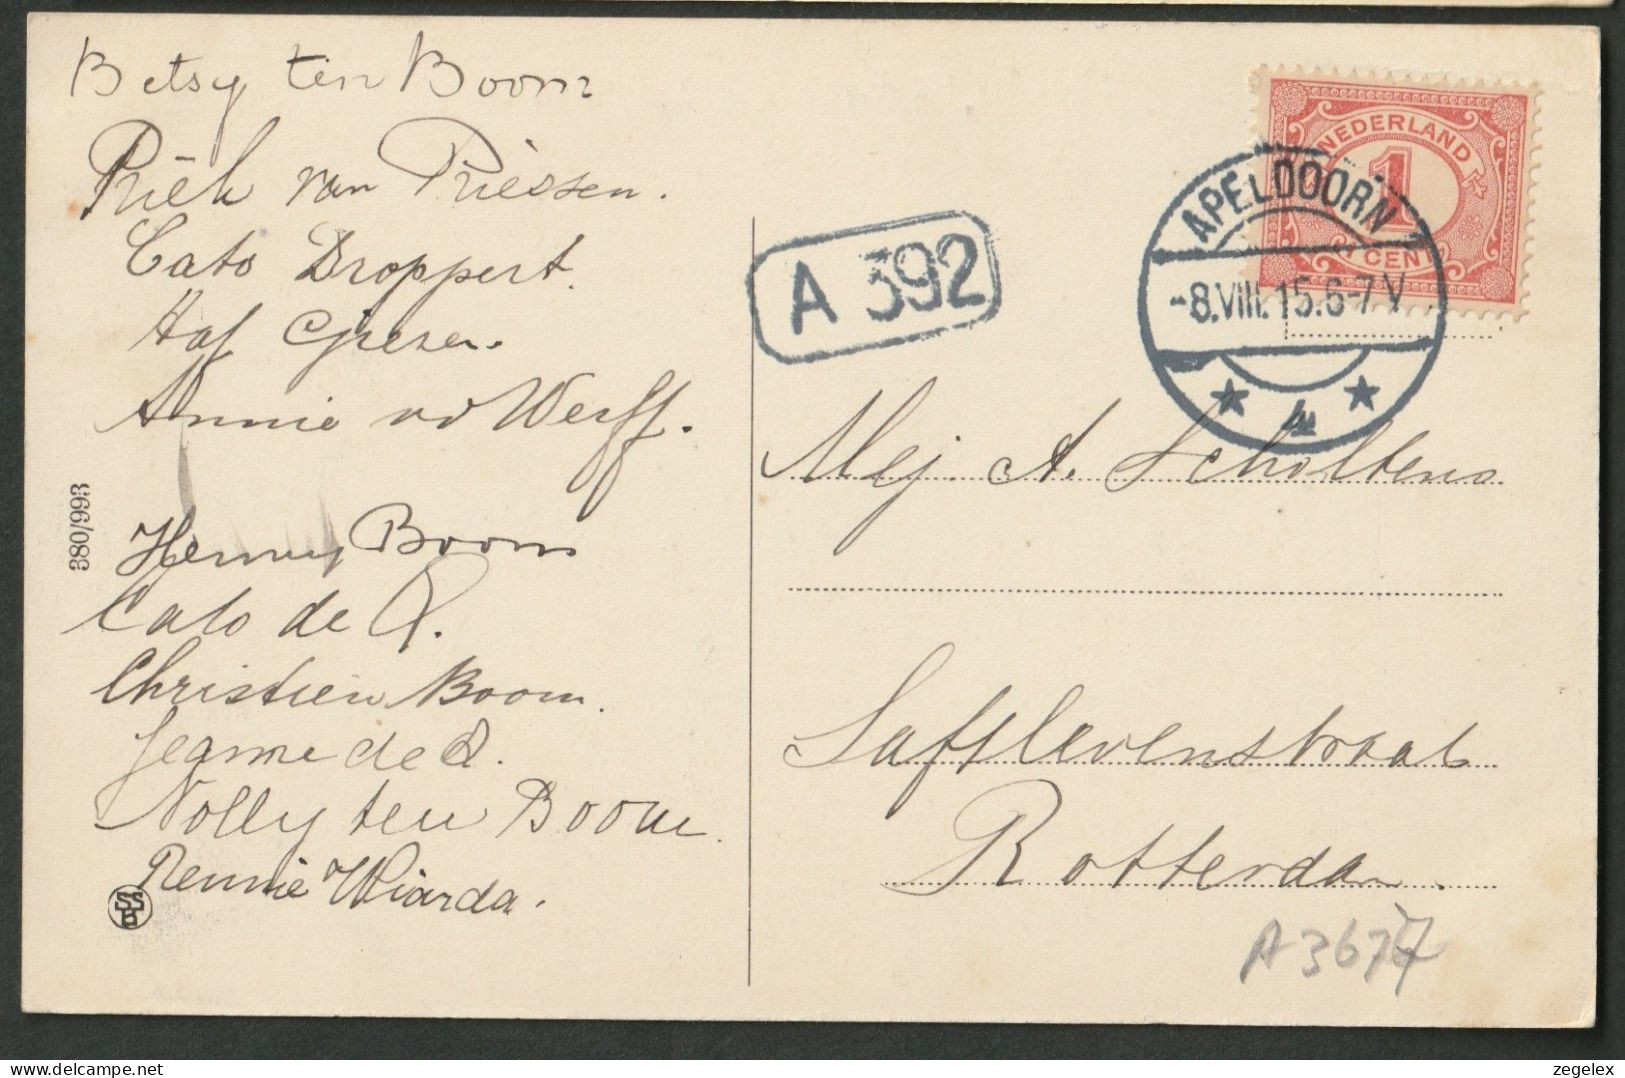 Betsy ten Boom
Riek van Driessen.
Cato Droppert.
Annie vd Werff.
Henny Boom
Cato de R.
Christien Boom.
Jeanne de R.
Nolly ten Boom.
Rennie Wiarda.
380/993
SS
B
A 392
NEDERLAND
1
1 CENT
APELDOORN
-8.VIII.15.6-7 V
4
Mej. A. Scholtens
Saftlevenstraat
Rotterdam.
A 3677
zegelex
www.delcampe.net